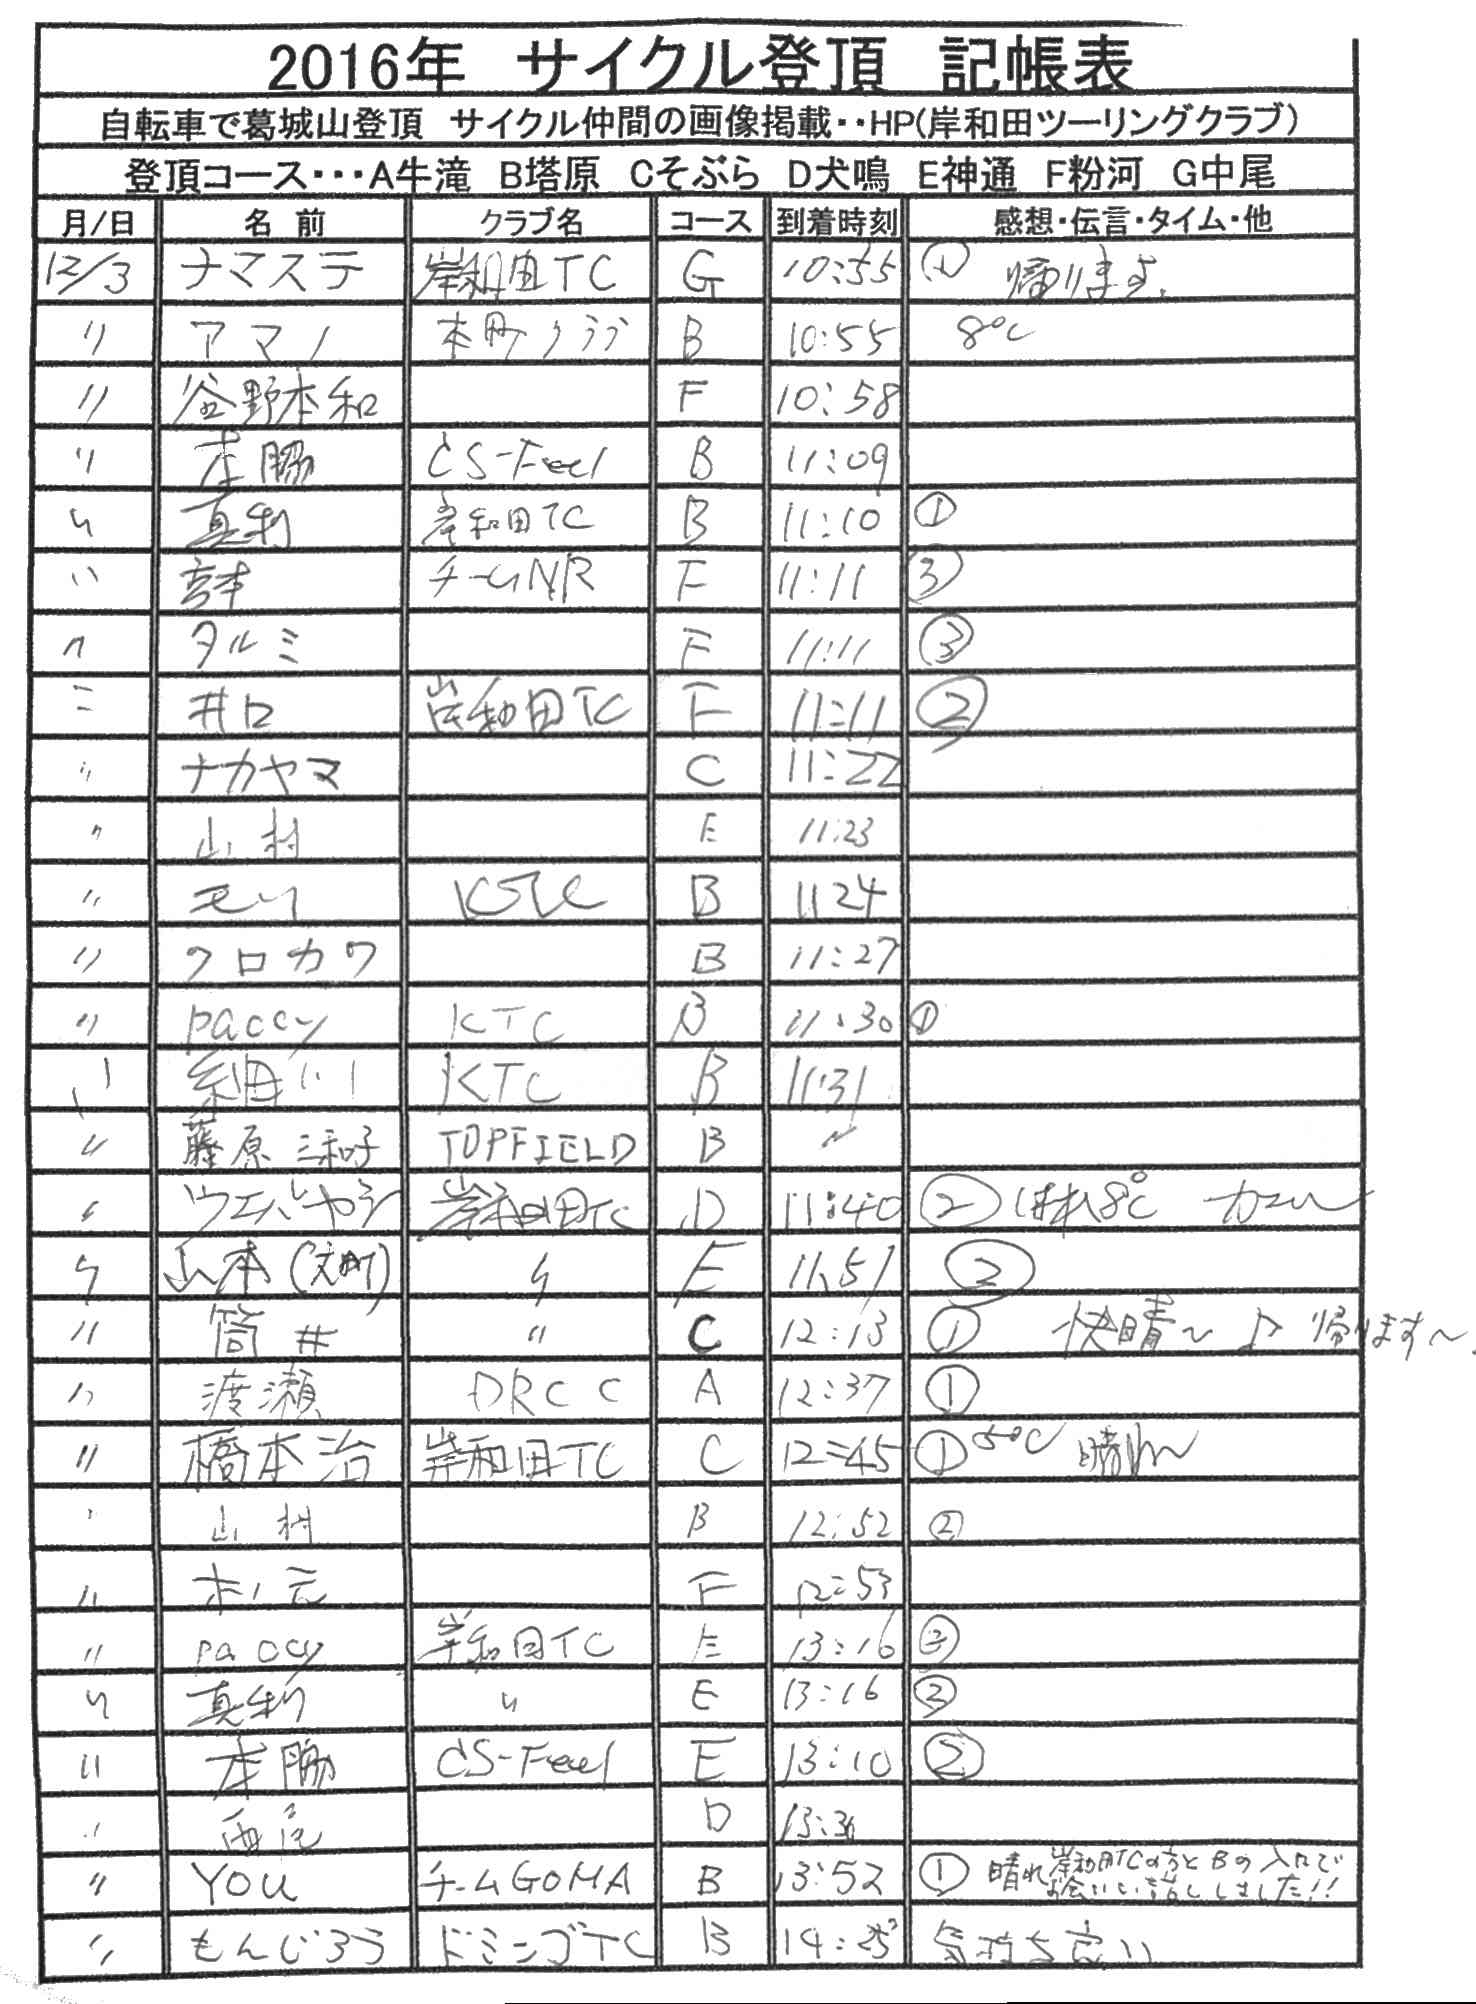 2016年 サイクル登頂 記帳表
自転車で葛城山登頂 サイクル仲間の画像掲載・・HP(岸和田ツーリングクラブ)
登頂コース・・・A牛滝 B塔原 Cそぶら D犬鳴 E神通 F粉河 G中尾
月/日 名前 クラブ名 コース 到着時刻 感想・伝言・タイム・他
12/3 ナマステ 岸和田TC G 10:55 ① 帰ります.
〃 アマノ 本町クラブ B 10:55 8℃
〃 谷野本和 F 10:58
〃 本脇 CS-Feel B 11:09
〃 真利 岸和田TC B 11:10 ①
〃 チームNR F 11:11 ③
〃 タルミ F 11:11 ③
〃 井口 岸和田TC F 11:11 ②
〃 ナカヤマ C 11:22
〃 山村 E 11:23
〃 モリ KSTC B 11 24
〃 クロカワ B 11:27
〃 paccy KTC B 11:30 ①
〃 細川 KTC B 11:31
〃 藤原 三和子 TOPFIELD B 〃
〃 ウエバヤシ 岸和田TC D 11:40 ② はれ8℃
〃 山本(文町) 〃 E 11:51 ②
〃 筒井 〃 C 12:13 ① 快晴～♪ 帰ります～.
〃 渡瀬 DRCC A 12:37 ①
〃 橋本治 岸和田TC C 12:45 ① 5℃ 晴れ
〃 山村 B 12:52 ②
〃 木ノ元 F 12:53
〃 paccy 岸和田TC E 13:16 ②
〃 真利 〃 E 13:16 ②
〃 本脇 CS-Feel E 13:10 ②
〃 西尾 D 13:36
〃 YOU チームGOMA B 13:52 ① 晴れ 岸和田TCの方とBの入口で
お会いし話ししました!!
〃 もんじろう ドミンゴTC B 14:25 気持ち良い